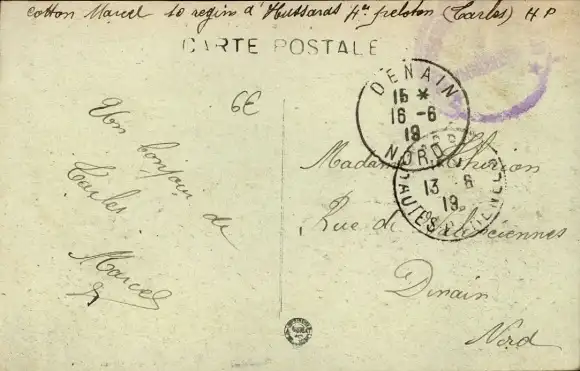 Cotton Marcel 10 regim d'Hussards 4e peloton (Tarbes) H P
CARTE POSTALE
6E
Un bonjour de
Tarbes
Marcel
DENAIN
15 *
16 - 6
19
NORD
13 - 6
19
HAUTES PYRENEES
Madame
Rue de Valenciennes
Denain
Nord